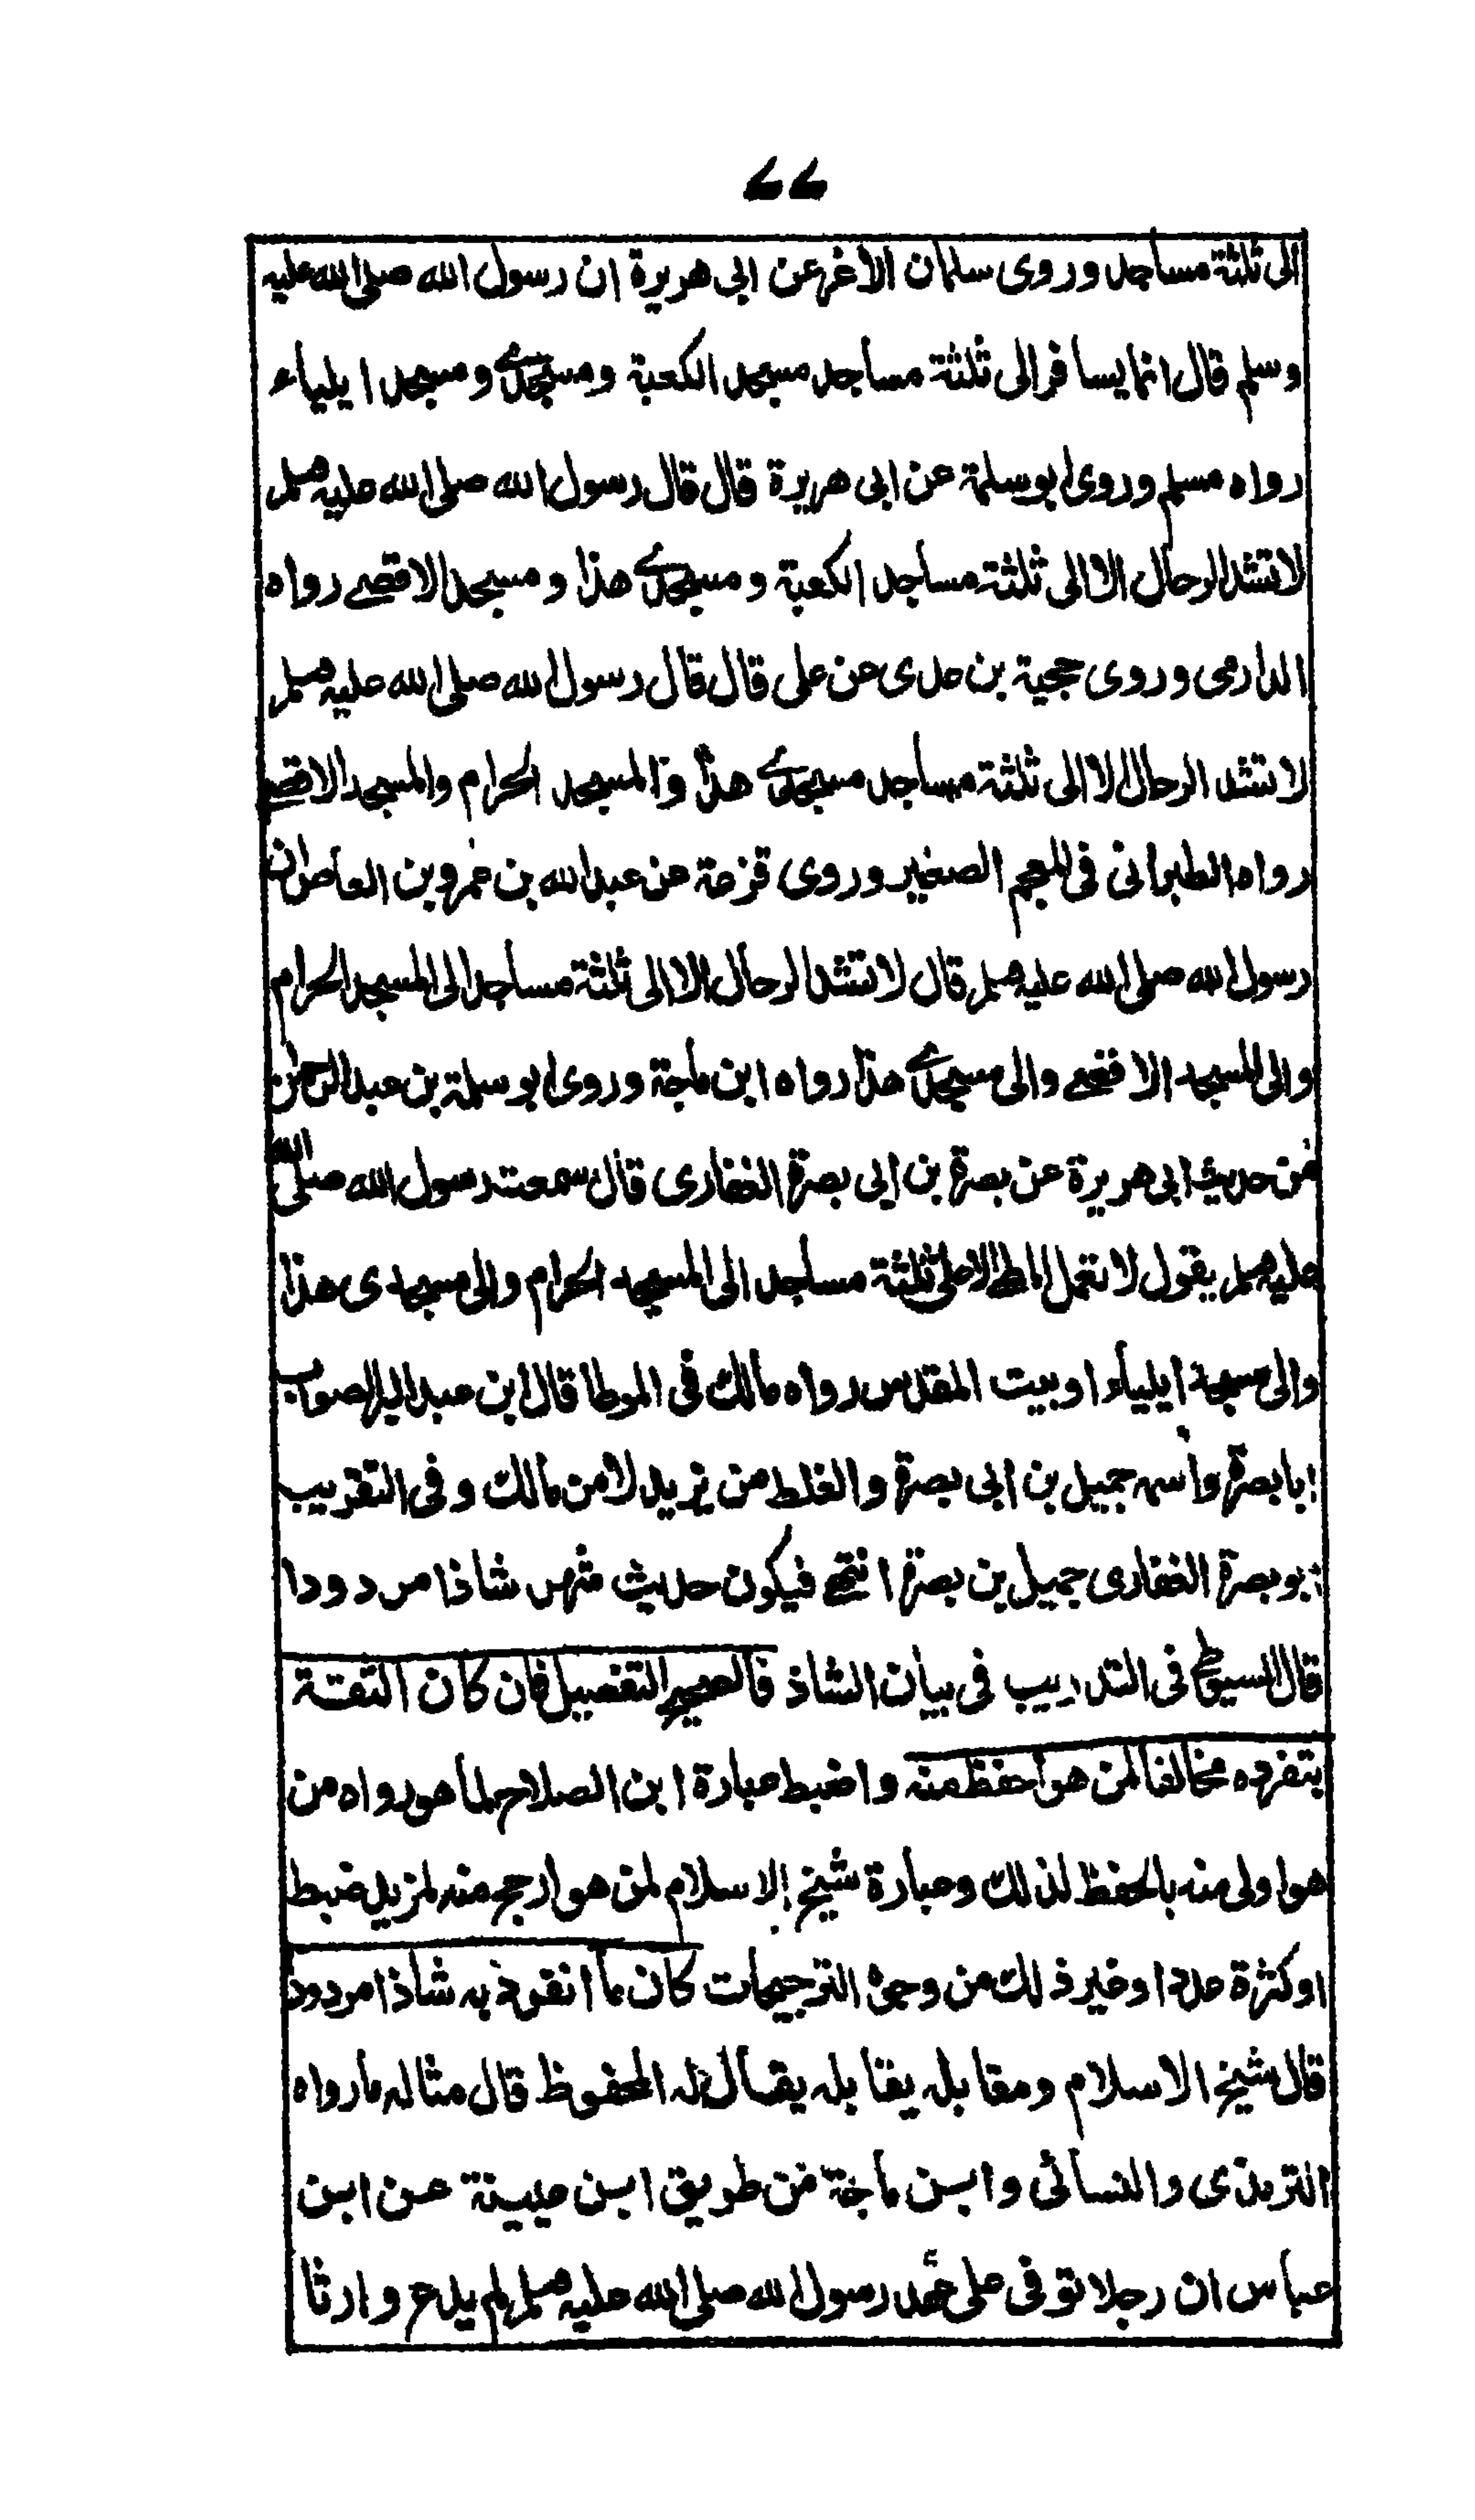 ٦٦
الى ثلثة مساجد وروى سلمان الاغر عن ابى هريرة ان رسول الله صلى الله عليه
وسلم قال انما يسافر الى ثلثة مساجد مسجد الكعبة ومسجدى ومسجد ايلياء
رواه مسلم وروى ابو سلمة عن ابى هريرة قال قال رسول الله صلى الله عليه وسلم
لا تشد الرحال الا الى ثلثة مساجد الكعبة ومسجدى هذا ومسجد الاقصى رواه
الدارمى وروى حجية بن عدى عن على قال قال رسول الله صلى الله عليه وسلم
لا تشد الرحال الا الى ثلثة مساجد مسجدى هذا والمسجد الحرام والمسجد الاقصى
رواه الطبرانى فى المعجم الصغير وروى قزعة عن عبد الله بن عمرو بن العاص ان
رسول الله صلى الله عليه وسلم قال لا تشد الرحال الا الى ثلثة مساجد الى المسجد الحرام
والى المسجد الاقصى والى مسجدى هذا رواه ابن ماجة وروى ابو سلمة بن عبد الرحمن
من حديث ابى هريرة عن بصرة بن ابى بصرة الغفارى قال سمعت رسول الله صلى الله
عليه وسلم يقول لا تعمل المطى الا الى ثلثة مساجد الى المسجد الحرام والى مسجدى هذا
والى مسجد ايلياء او بيت المقدس رواه مالك فى الموطا قال ابن عبد البر الصواب
ابا بصرة واسمه جميل بن ابى بصرة والغلط من يزيد لا من مالك وفى التقريب
ابو بصرة الغفارى جميل بن بصرة انتهى فيكون حديث شهر شاذا مردودا
قال السيوطى فى التدريب فى بيان الشاذ فالصحيح التفصيل فان كان الثقة
بتفرده مخالفا لمن هو احفظ منه واضبط عبارة ابن الصلاح لما هو رواه من
هو اولى منه بالحفظ لذلك وعبارة شيخ الاسلام لمن هو ارجح منه لمزيد ضبط
او كثرة عدد او غير ذلك من وجوه الترجيحات كان ما انفرد به شاذا مردودا
قال شيخ الاسلام ومقابله يقابله يقال له المحفوظ قال مثاله ما رواه
الترمذى والنسائى وابن ماجة من طريق ابن عيينة عن ابن
عباس ان رجلا توفى على عهد رسول الله صلى الله عليه وسلم لم يدع وارثا